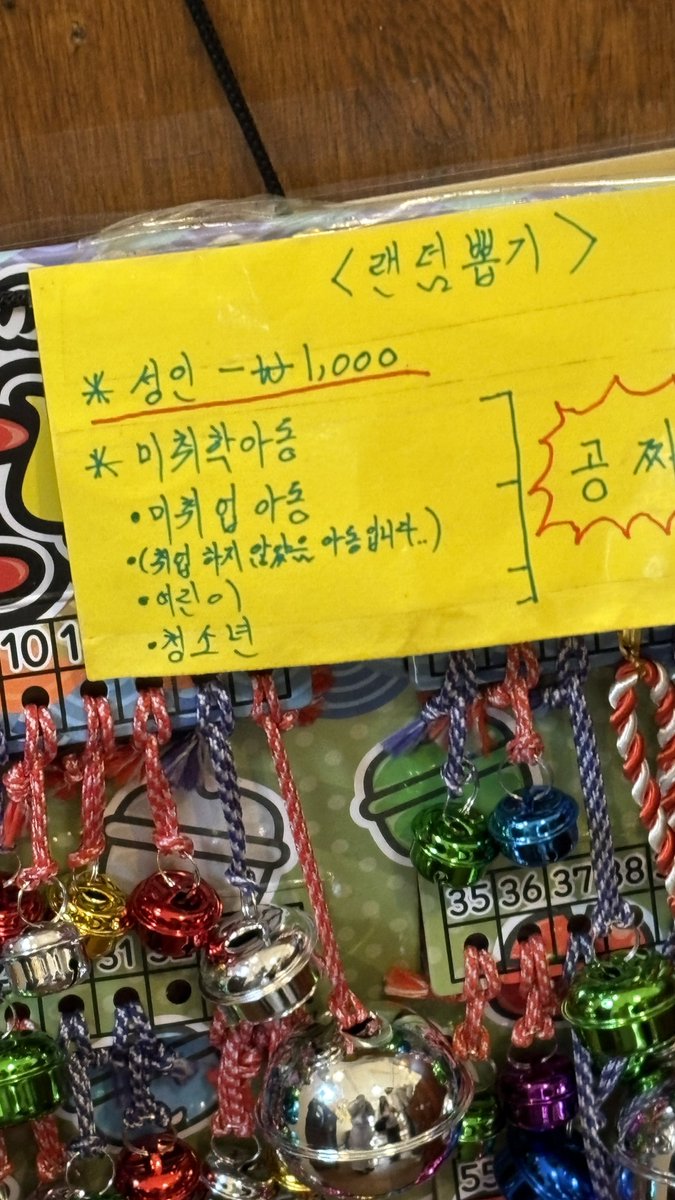 <랜덤뽑기>
* 성인 - ₩1,000
* 미취학아동
• 미취업 아동
• (취업 하지 않았음 아동입니다..)
• 어린이
• 청소년
공짜
10
31
35 36 37 38
55